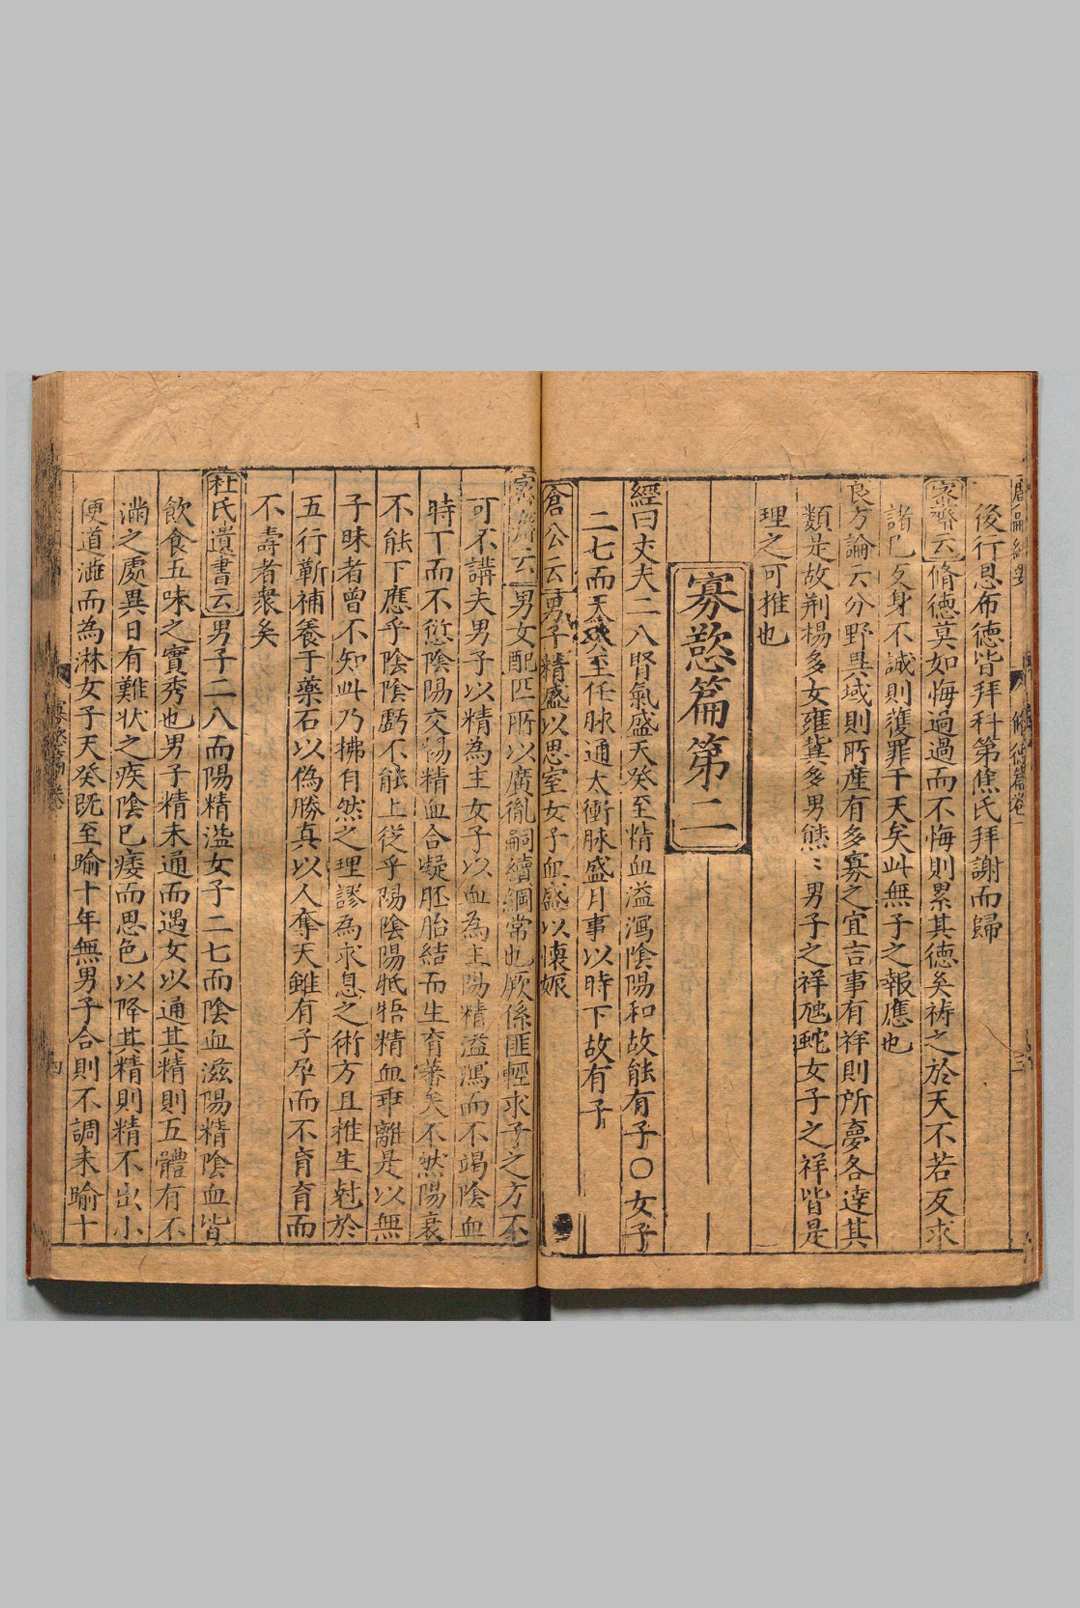 後行恩布德皆拜科第焦氏拜謝而歸
宻齋云脩德莫如悔過過而不悔則累其德矣祷之於天不若反求
諸已反身不誠則獲罪于天矣此無子之報應也
良方論云分野異域則所產有多寡之宜言事有祥則所夢各逹其
類是故荆楊多女雍冀多男熊〻男子之祥虺蛇女子之祥皆是
理之可推也
寡慾篇第二
經曰丈夫二八腎氣盛天癸至精血溢瀉陰陽和故能有子○女子
二七而天癸至任脉通太衝脉盛月事以時下故有子
倉公云男子精盛以思室女子血盛以懷娠
宻齋云男女配匹所以廣胤嗣續綱常也厥係匪輕求子之方不
可不講夫男子以精為主女子以血為主陽精溢瀉而不竭陰血
時下而不愆陰陽交暢精血合凝胚胎結而生育蕃矣不然陽衰
不能下應乎陰陰虧不能上從乎陽陰陽牴牾精血乖離是以無
子昧者曾不知此乃拂自然之理謬為求息之術方且推生尅於
五行蘄補養于藥石以偽勝真以人奪天雖有子孕而不育育而
不壽者衆矣
杜氏遺書云男子二八而陽精溢女子二七而陰血滋陽精陰血皆
飲食五味之實秀也男子精未通而遇女以通其精則五體有不
滿之處異日有難状之疾陰已痿而思色以降其精則精不出小
便道澁而為淋女子天癸既至踰十年無男子合則不調未踰十
寡慾篇卷
四